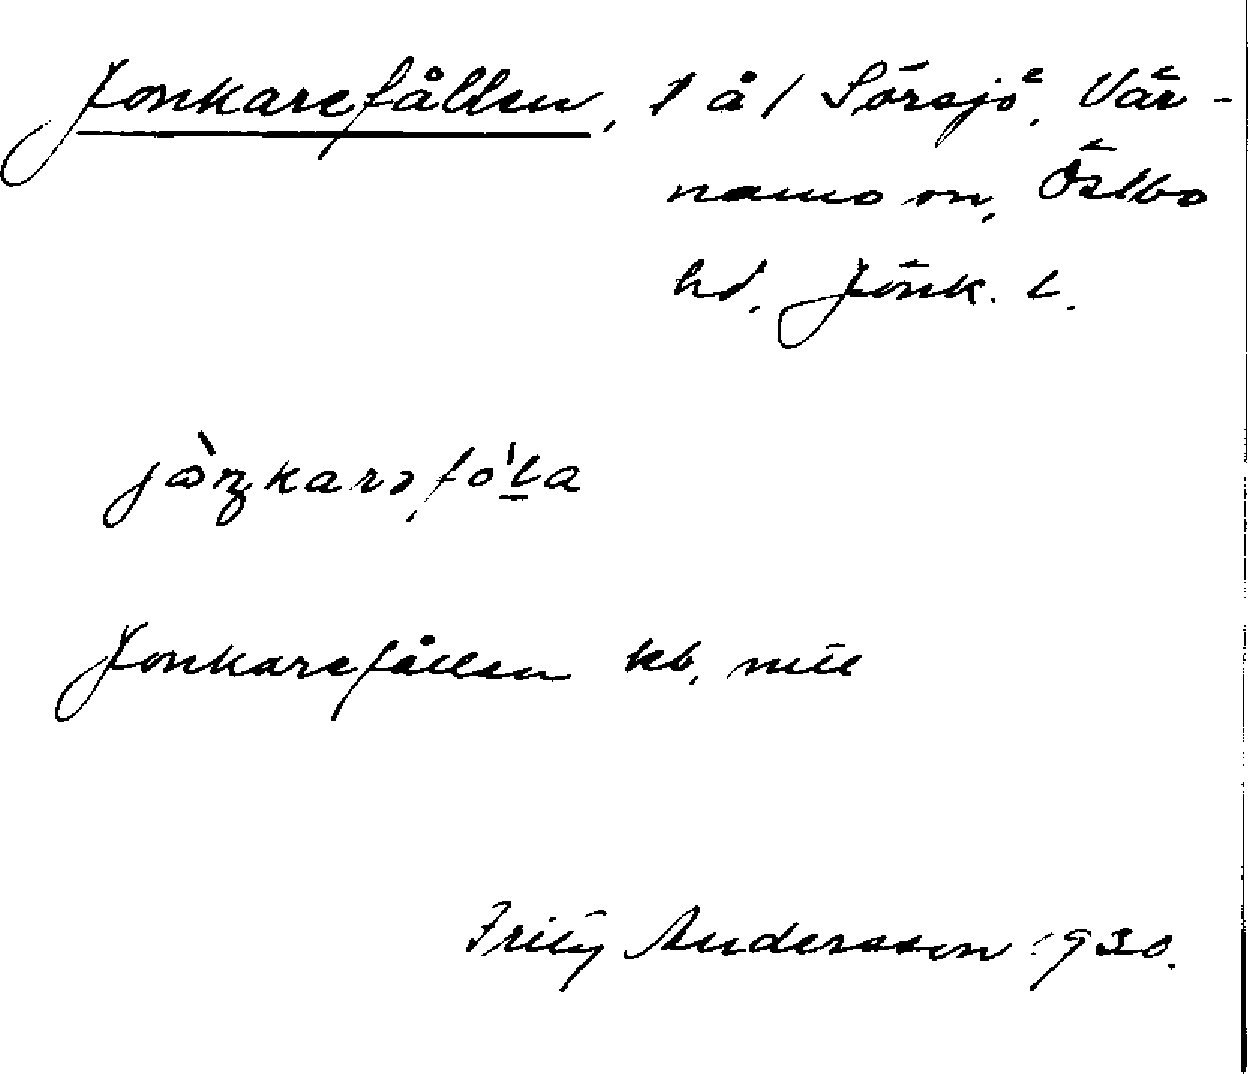 Jonkarefållen, 1 å / Sörsjö, Vär-
namo sn, Östbo
hd, Jönk. l.
Jonkarefållen kb, mtl
Fritz Andersson 1930.